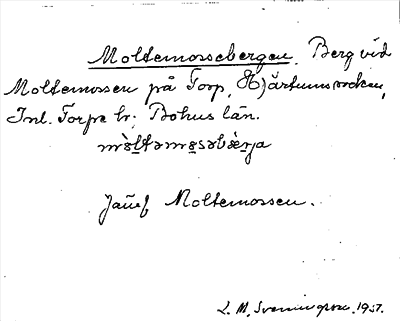 Moltemossebergen, Berg vid
Moltemossen på Torp, Hjärtums socken,
Inl. Torpe hr; Bohus län.
mòltəmosəbæ̀rja
Jämf Moltemossen.
L. M. Svenningsson. 1937.